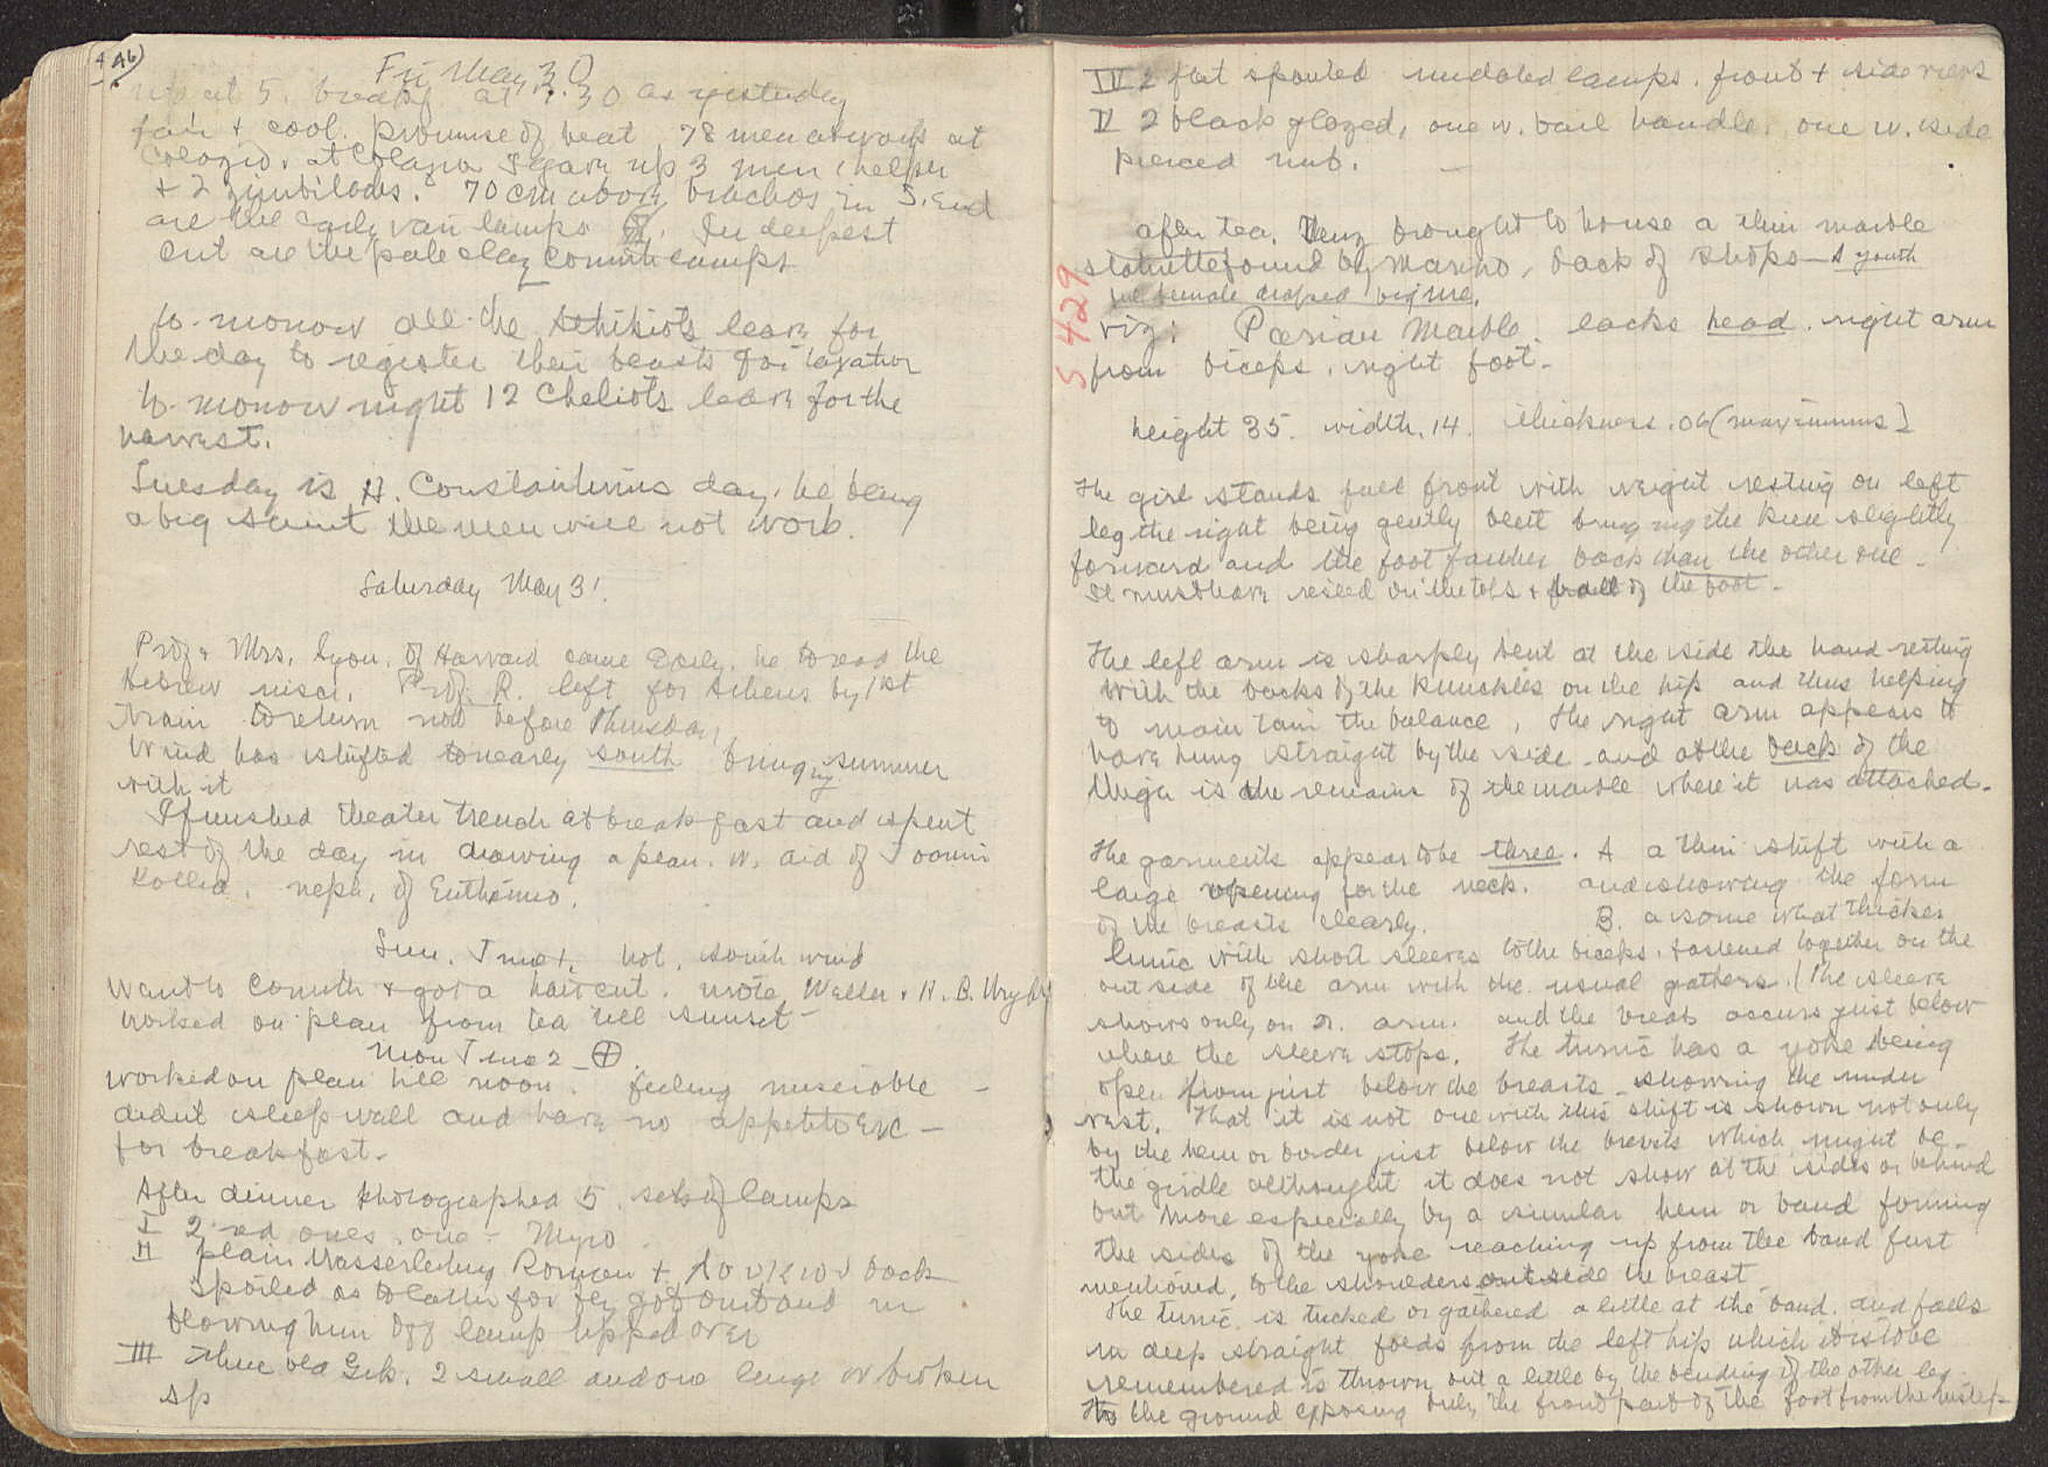 46
Fri May 30
up at 5. breakf at 7.30 as yesterday
fair + cool. promise of heat 78 men at work at
at I gave up 3 men 1 helper
+ 2 zimbilades. 70 cm above brachos in S. End
are the early lamps. In deepest
cut are the pale clay Corinth lamps
to-morrow all the leave for
the day to register their beasts for taxation
to-morrow night 12 Cheliots leave for the
harvest.
Tuesday is H. Constantinus day, he being
a big saint the men will not work.
Saturday May 31.
Prof + Mrs. Lyon. of Harvard came early. he to read the
Hebrew inscr. Prof. R. left for Athens by 1st
train to return not before Thursday
Wind has shifted to nearly south bringing summer
with it
I finished theater trench at breakfast and spent
rest of the day in drawing a plan. w. aid of
neph. of
Sun. June 1. hot. south wind
Went to Corinth + got a haircut. wrote Weller + H. B. Wright
worked on plan from tea till sunset
Mon June 2 ⊕.
worked on plan till noon. feeling miserable -
didn't sleep well and have no appetite exc -
for breakfast -
After dinner photographed 5 sets of lamps
I 2 red ones. one -
II plain Roman + back
spoiled as to latter for fly got on it and in
blowing him off lamp tipped over
III three old Grk. 2 small and one large w broken
sp
IV 2 flat spouted lamps. front + side views
V 2 black glazed, one w. bail handle. one w. side
pierced nub.
after tea. brought to house a thin marble
statuette found by, back of shops - A youth
female draped figure.
S 429
viz: Parian Marble. lacks head. right arm
from biceps. right foot.
height 35. width. 14. thickness. 06 (maximums)
The girl stands full front with weight resting on left
leg the right being gently bent bringing the knee slightly
forward and the foot farther back than the other one -
It must have rested on the toes + ball of the foot -
The left arm is sharply bent at the side the hand resting
with the backs of the knuckles on the hip and thus helping
to maintain the balance, The right arm appears to
have hung straight by the side and at the back of the
thigh is the remains of the marble where it was attached -
The garments appear to be three. A a thin shift with a
large opening for the neck. and showing the form
of the breasts clearly. B. a somewhat thicker
tunic with short sleeves to the biceps. fastened together on the
outside of the arm with the usual gathers. (The sleeve
shows only on r. arm. and the break occurs just below
where the sleeve stops. The tunic has a yoke being
open from just below the breasts showing the under
vest. That it is not one with this shift is shown not only
by the hem or border just below the breasts which might be -
the girdle although it does not show at the sides or behind
but more especially by a similar hem or band forming
the sides of the yoke reaching up from the band just
mentioned, to the shoulders outside the breast -
The tunic is tucked or gathered a little at the band. and falls
in deep straight folds from the left hip which it is to be
remembered is thrown out a little by the bending of the other leg
to the ground exposing only the front part of the foot from the instep